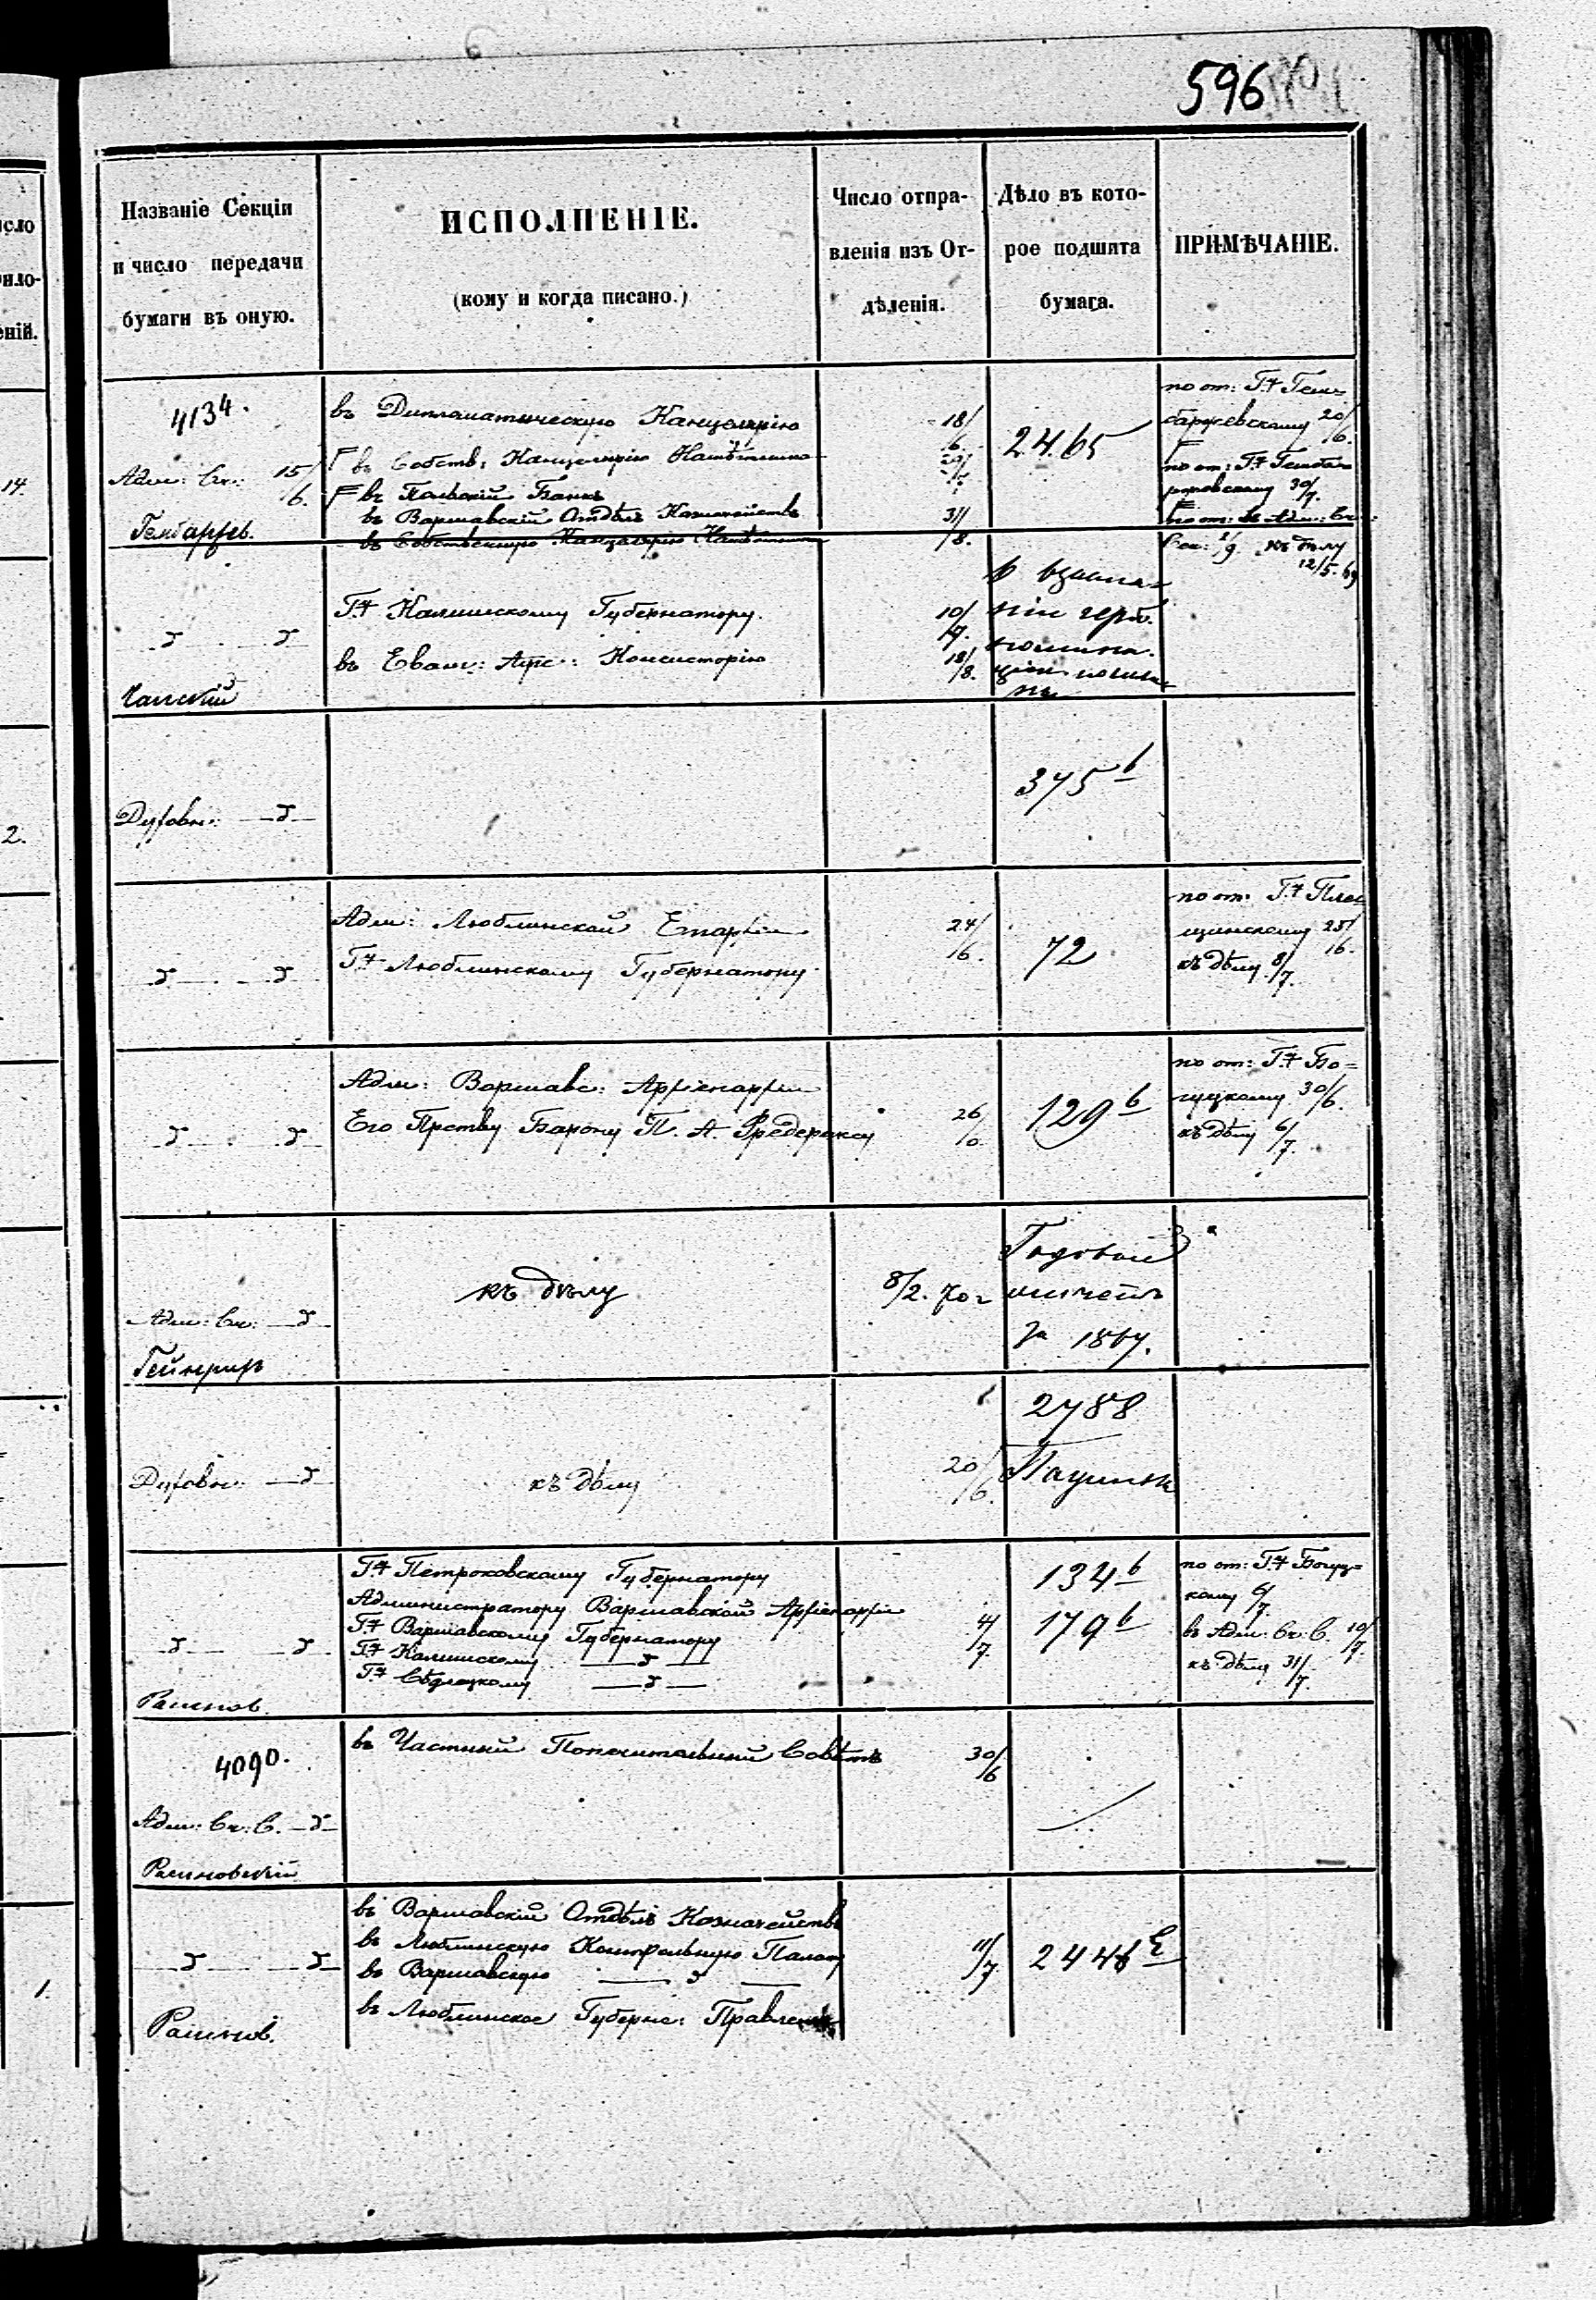 596
Названіе Секціи
и число передачи
бумаги въ оную.
ИСПОЛНЕНІЕ.
(кому и когда писано.)
Число отпра-
вленія изъ От-
дѣленія.
Дѣло въ кото-
рое подшита
бумага.
ПРИМѢЧАНІЕ.
4134.
Адм: Св: 15/6.
Гембаржев.
въ Дипломатическую Канцелярію
въ Собств: Канцелярію Намѣстника
въ Польскій Банкъ
въ Варшавскій Отдѣлъ Казначейства
въ Собственную Канцелярію Намѣстника
18/6.
31/8.
2465
по от: Г. Гем-
баржевскому 20/6.
по от: Г. Гемба-
ржевскому 30/7.
къ дѣлу
12/5. 69
Г. Калишскому Губернатору.
въ Еванг: Аугс: Консисторію
10/7.
18/8.
о взима-
ніи герб.
пошлин
Духовн:
375 б
Адм: Люблинской Епархіи
Г. Люблинскому Губернатору.
24/6.
72
по от: Г.
25/6.
къ дѣлу 8/7.
Адм: Варшавс: Архіепархіи
Его Прству Барону П. А. Фредериксу
26/6
129 б
по от: Г. Бо-
гуцкому 30/6.
къ дѣлу 6/7.
Адм: Св:
Гейнрих
къ дѣлу
8/2. 70 г
Годовой
отчетъ
за 1867.
Духовн:
къ дѣлу
20/6.
2788
Г. Петроковскому Губернатору
Администратору Варшавской Архіепархіи
Г. Варшавскому Губернатору
Г. Калишскому
Г. Сѣдлецкому
4/7.
134 б
179 б
по от: Г. Богуц-
кому 6/7.
въ Адм: Св: С. 10/7.
къ дѣлу 31/7.
Рашнов.
4090.
Адм: Св: С.
Рашновскій
въ Частный Попечительный Совѣтъ
30/6
въ Варшавскій Отдѣлъ Казначейства
въ Люблинскую Контрольную Палату
въ Варшавскую
въ Люблинское Губернс: Правленіе
11/7
Рашнов.